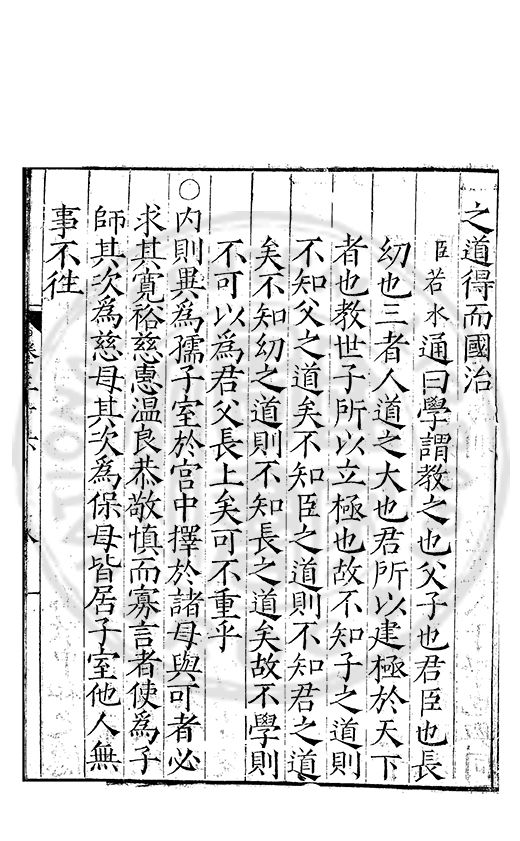 之道得而國治
臣若水通曰學謂教之也父子也君臣也長
幼也三者人道之大也君所以建極於天下
者也教世子所以立極也故不知子之道則
不知父之道矣不知臣之道則不知君之道
矣不知幼之道則不知長之道矣故不學則
不可以為君父長上矣可不重乎
○内則異為孺子室於宫中擇於諸母與可者必
求其寛裕慈惠温良恭敬慎而寡言者使為子
師其次為慈母其次為保母皆居子室他人無
事不徃